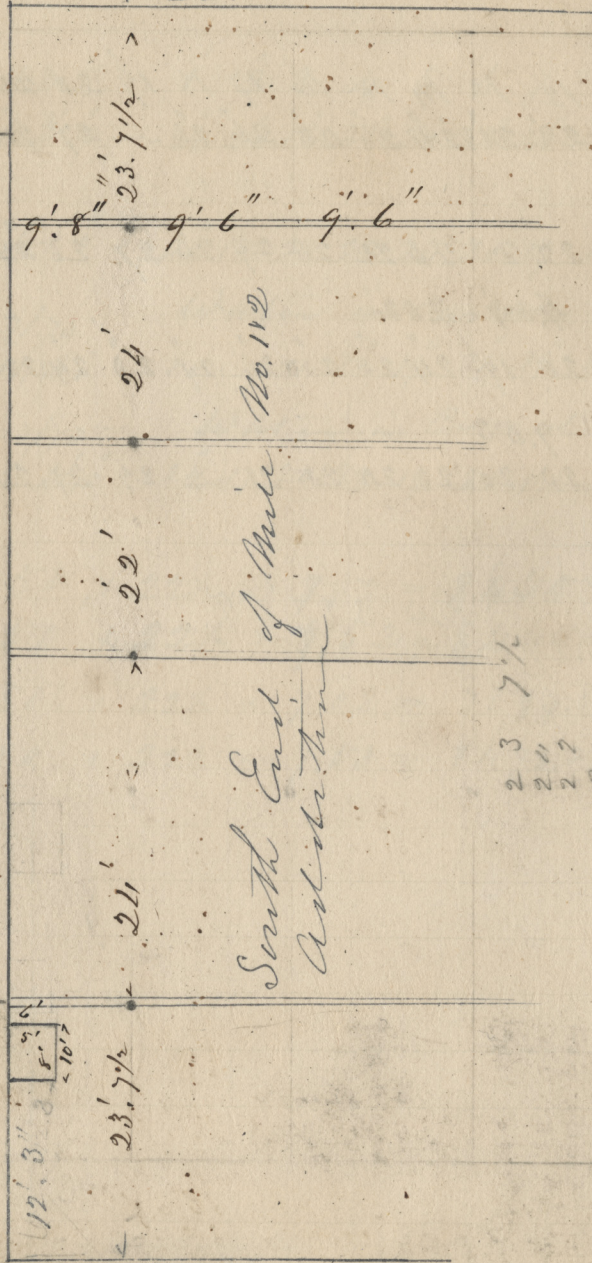 9'. 8" 9' 6" 9'. 6"
23'. 7½
24'
22'
24'
23'. 7½
South End of Mill No. 1&2
Addition
12'. 3"
8'
10'
23 7½
24
22